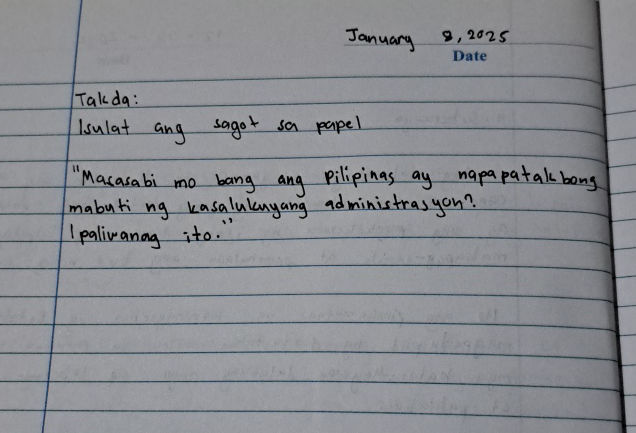 January 8, 2025
Date
Takda:
Isulat ang sagot sa papel
"Masasabi mo bang ang Pilipinas ay napapatakbong
mabuti ng kasalukuyang administrasyon?
Ipaliwanag ito."